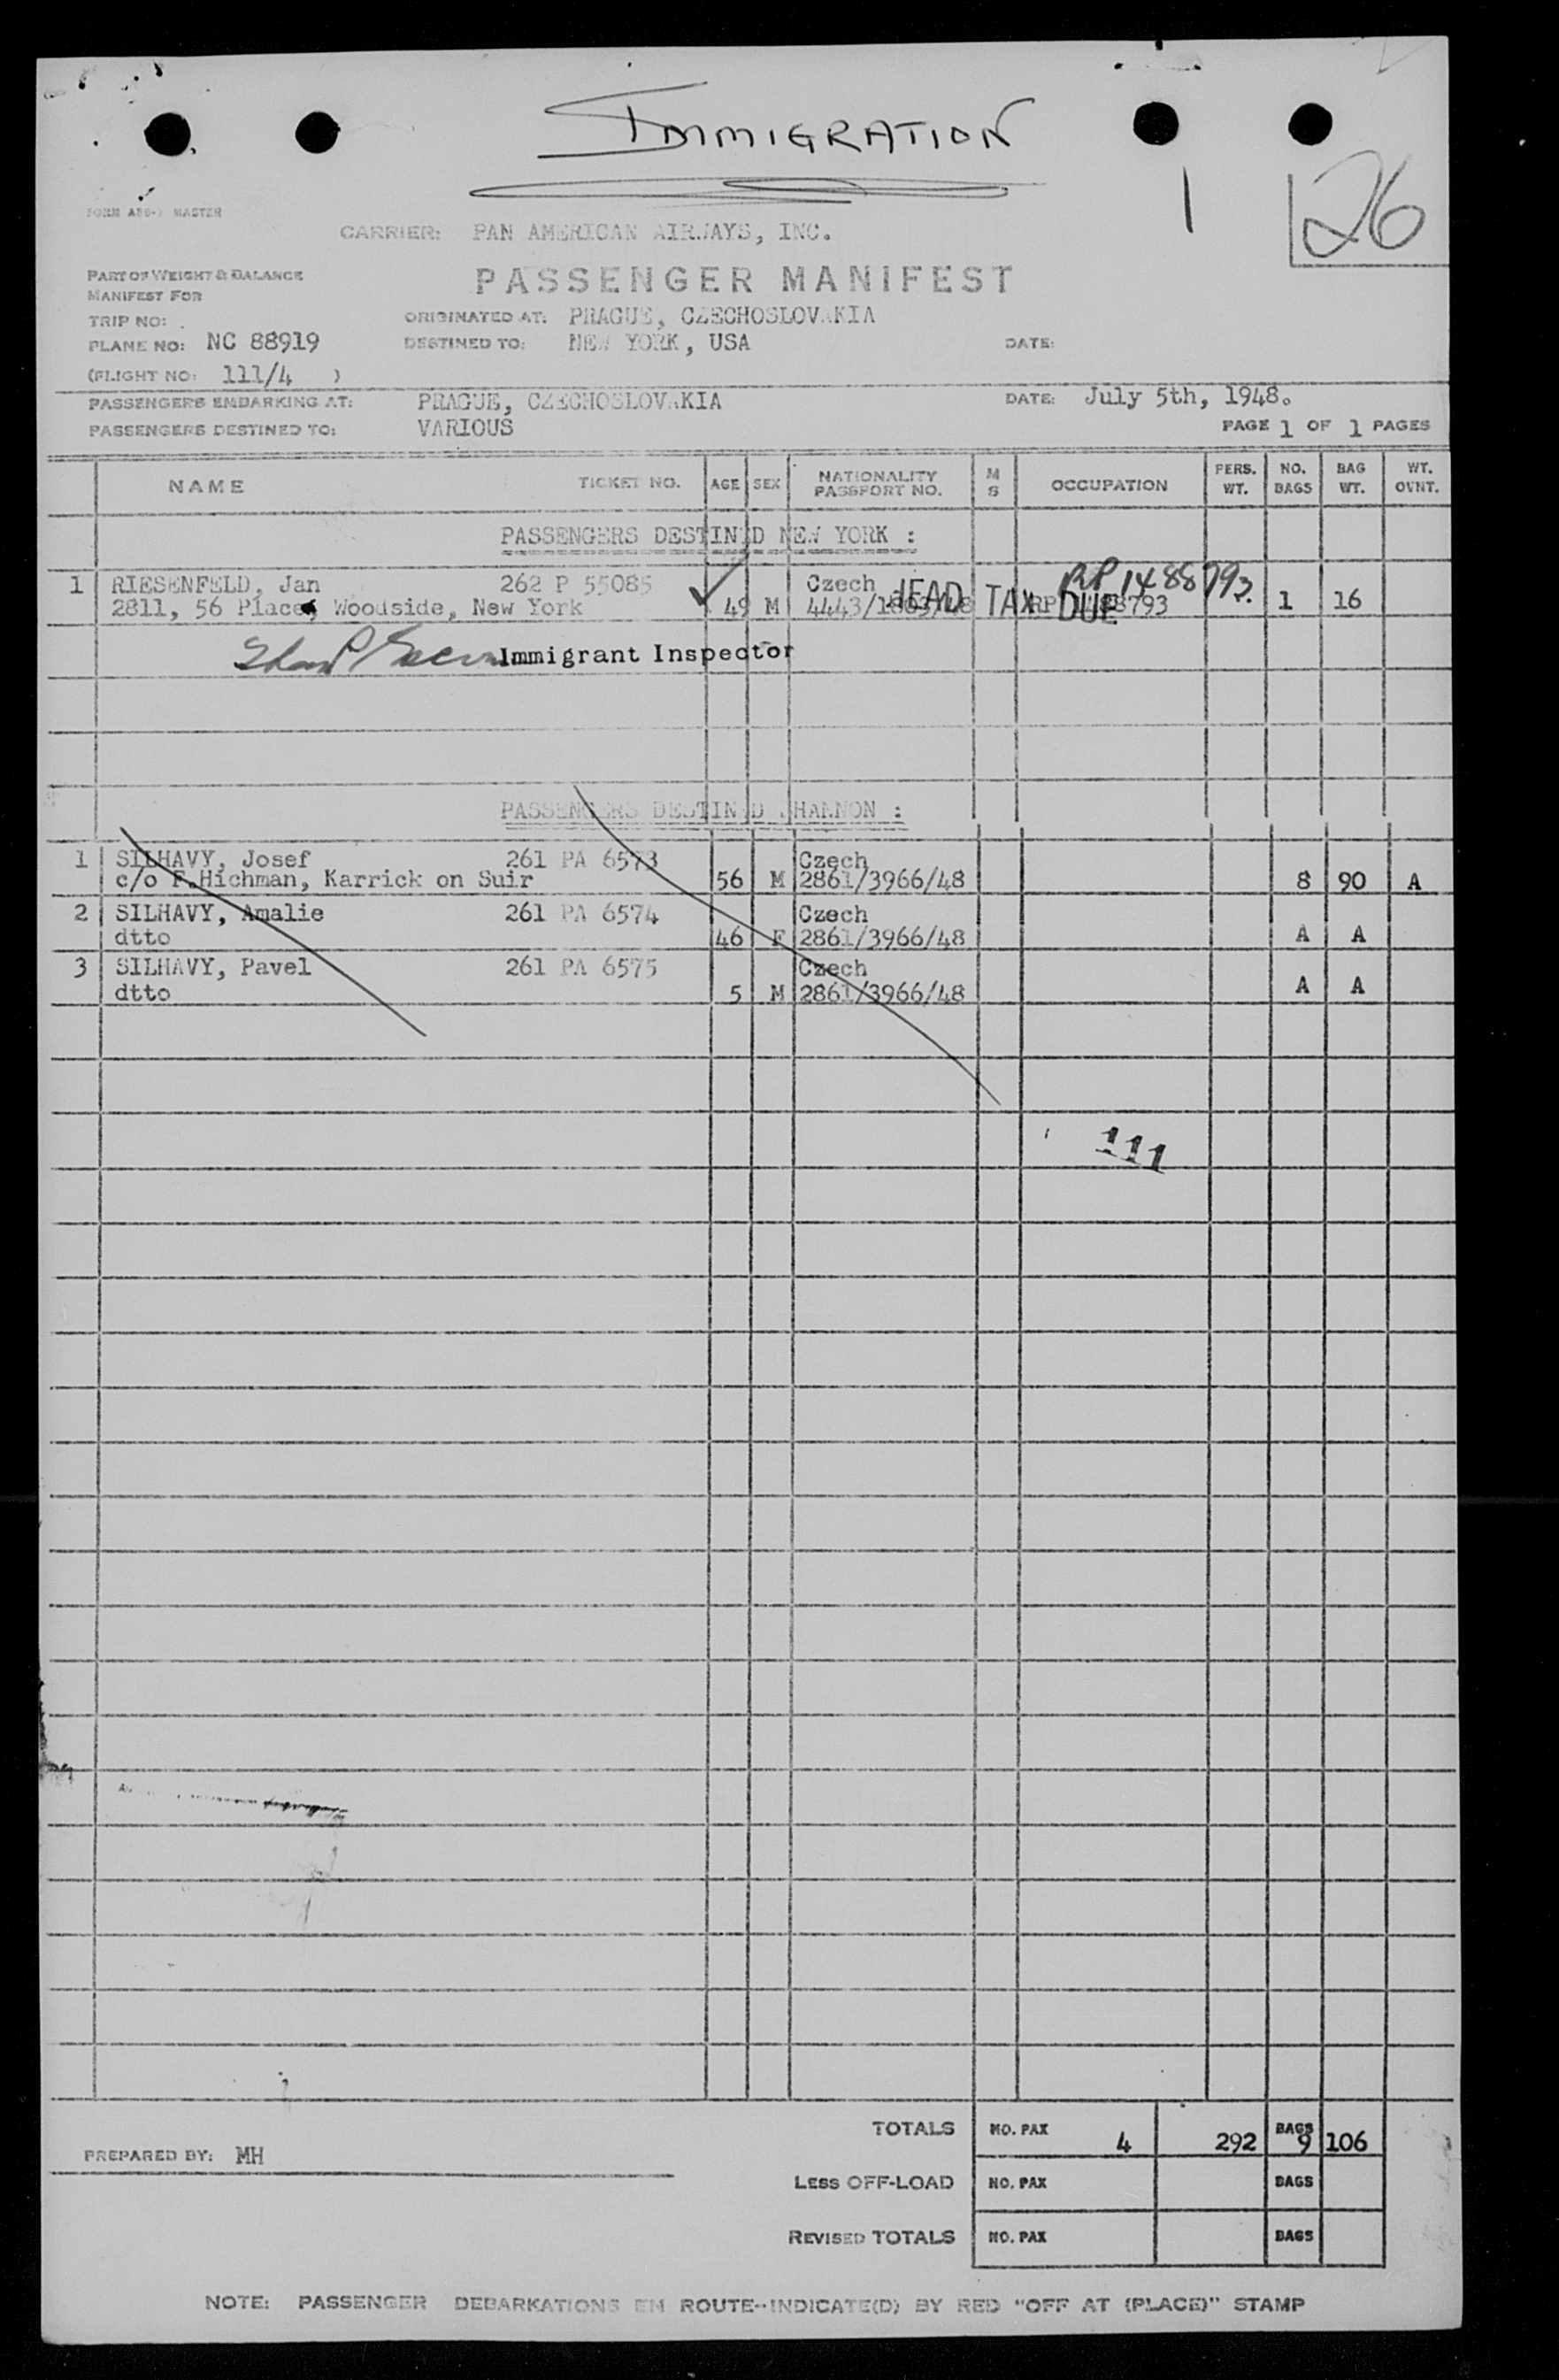 IMMIGRATION
1
26
FORM MASTER
CARRIER: PAN AMERICAN AIRWAYS, INC.
PART OF WEIGHT & BALANCE
MANIFEST FOR
PASSENGER MANIFEST
TRIP NO:
ORIGINATED AT: PRAGUE, CZECHOSLOVAKIA
PLANE NO: NC 88919
DESTINED TO: NEW YORK, USA
DATE:
(FLIGHT NO: 111/4 )
PASSENGERS EMBARKING AT: PRAGUE, CZECHOSLOVAKIA
DATE: July 5th, 1948.
PASSENGERS DESTINED TO: VARIOUS
PAGE 1 OF 1 PAGES
NAME TICKET NO. AGE SEX NATIONALITY PASSPORT NO. M S OCCUPATION PERS. WT. NO. BAGS BAG WT. WT. OVNT.
PASSENGERS DESTINED NEW YORK :
1 RIESENFELD, Jan 262 P 55085 Czech RP 1488793
2811, 56 Place, Woodside, New York 49 M HEAD TAX DUE 1 16
Immigrant Inspector
PASSENGERS DESTINED SHANNON :
1 SILHAVY, Josef 261 PA 6573 Czech
c/o F.Hichman, Karrick on Suir 56 M 2861/3966/48 8 90 A
2 SILHAVY, Amalie 261 PA 6574 Czech
dtto 46 F 2861/3966/48 A A
3 SILHAVY, Pavel 261 PA 6575 Czech
dtto 5 M 2861/3966/48 A A
111
TOTALS NO. PAX 4 292 BAGS 9 106
PREPARED BY: MH
LESS OFF-LOAD NO. PAX BAGS
REVISED TOTALS NO. PAX BAGS
NOTE: PASSENGER DEBARKATIONS EN ROUTE--INDICATE(D) BY RED "OFF AT (PLACE)" STAMP